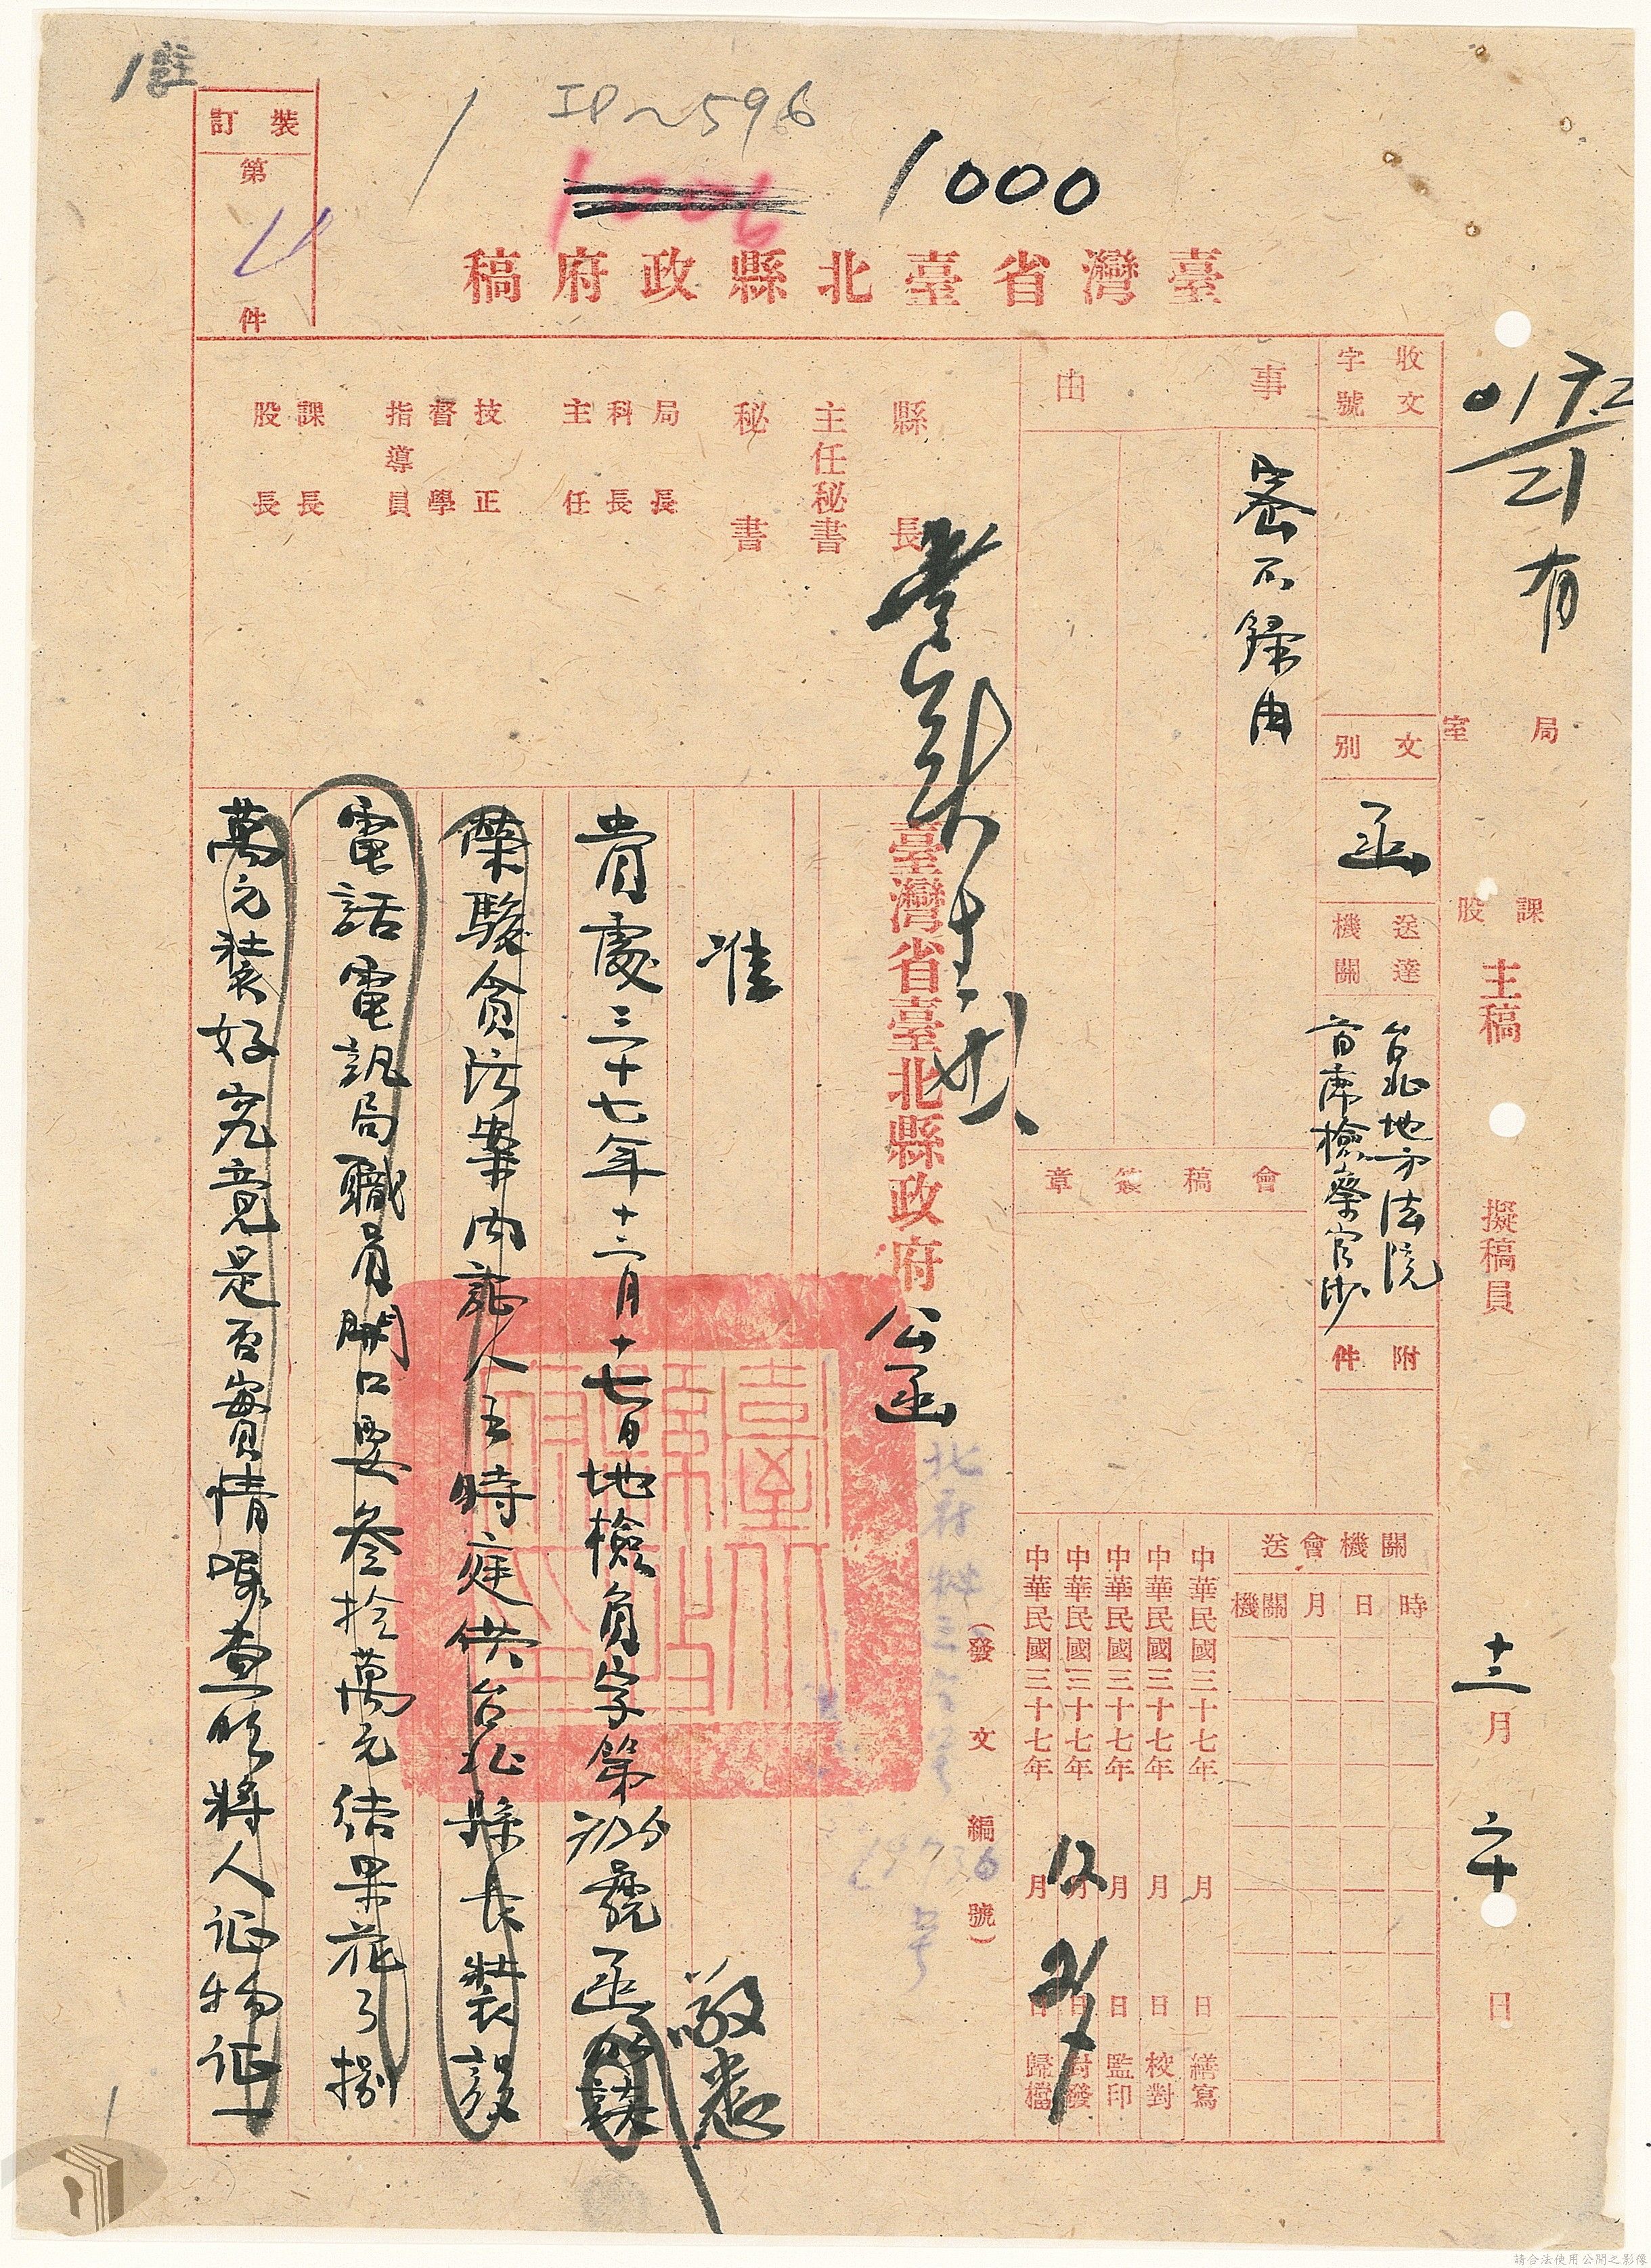 1 註
1
IP~596
1006
1000
裝訂
第
11
件
臺灣省臺北縣政府稿
有
局室
課股
主稿
擬稿員
十二月二十日
收文字號
文別
函
送達機關
台北地方法院
首席檢察官
附件
事由
密不錄由
會稿簽章
關機會送
時日月關機
中華民國三十七年 月 日繕寫
中華民國三十七年 月 日校對
中華民國三十七年 月 日監印
中華民國三十七年 月 日封發
中華民國三十七年12月 日歸檔
縣長
主任秘書
秘書
局長
科長
主任
技正
督學
指導員
課長
股長
臺灣省臺北縣政府公函
(發文編號)
准
貴處三十七年十二月十七日地檢負字第 號函
敬悉
榮駿貪污案內証人王時庭供台北縣長裝設
電話電訊局職員開口要叁拾萬元結果花了捌
萬元裝好究竟是否實情囑查明將人証物証一
請合法使用公開之影像